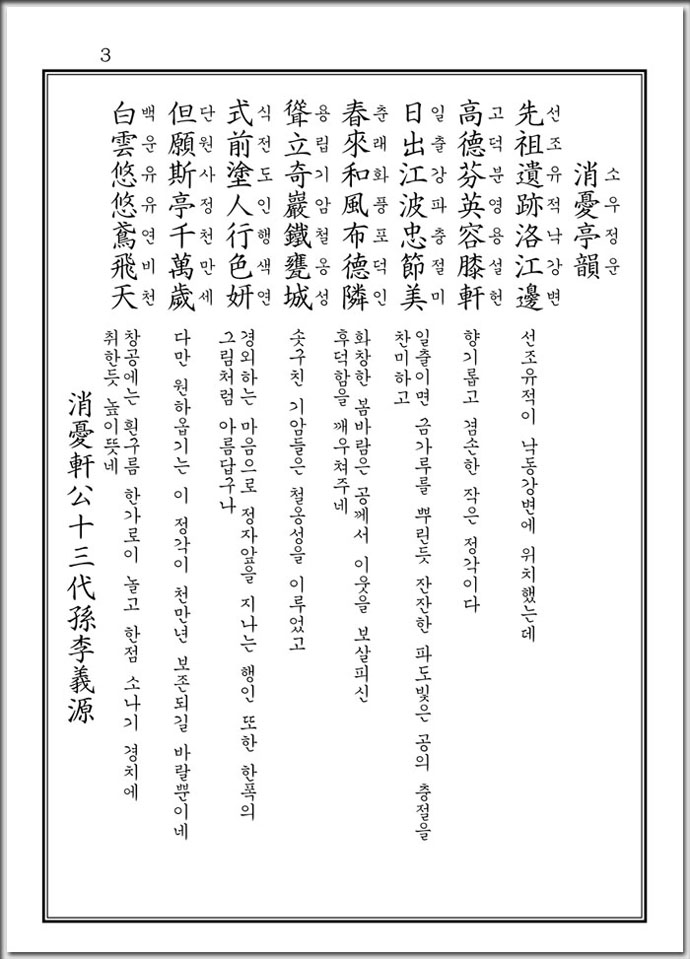 3
消憂亭韻
소우정운
先祖遺跡洛江邊
선조유적낙강변
선조유적이 낙동강변에 위치했는데
高德芬英容膝軒
고덕분영용설헌
향기롭고 겸손한 작은 정각이다
日出江波忠節美
일출강파충절미
일출이면 금가루를 뿌린듯 잔잔한 파도빛은 공의 충절을
찬미하고
春來和風布德隣
춘래화풍포덕인
화창한 봄바람은 공께서 이웃을 보살피신
후덕함을 깨우쳐주네
聳立奇巖鐵甕城
용립기암철옹성
솟구친 기암들은 철옹성을 이루었고
式前塗人行色姸
식전도인행색연
경외하는 마음으로 정자앞을 지나는 행인 또한 한폭의
그림처럼 아름답구나
但願斯亭千萬歲
단원사정천만세
다만 원하옵기는 이 정각이 천만년 보존되길 바랄뿐이네
白雲悠悠鳶飛天
백운유유연비천
창공에는 흰구름 한가로이 놀고 한점 소나기 경치에
취한듯 높이뜻네
消憂軒公十三代孫李義源